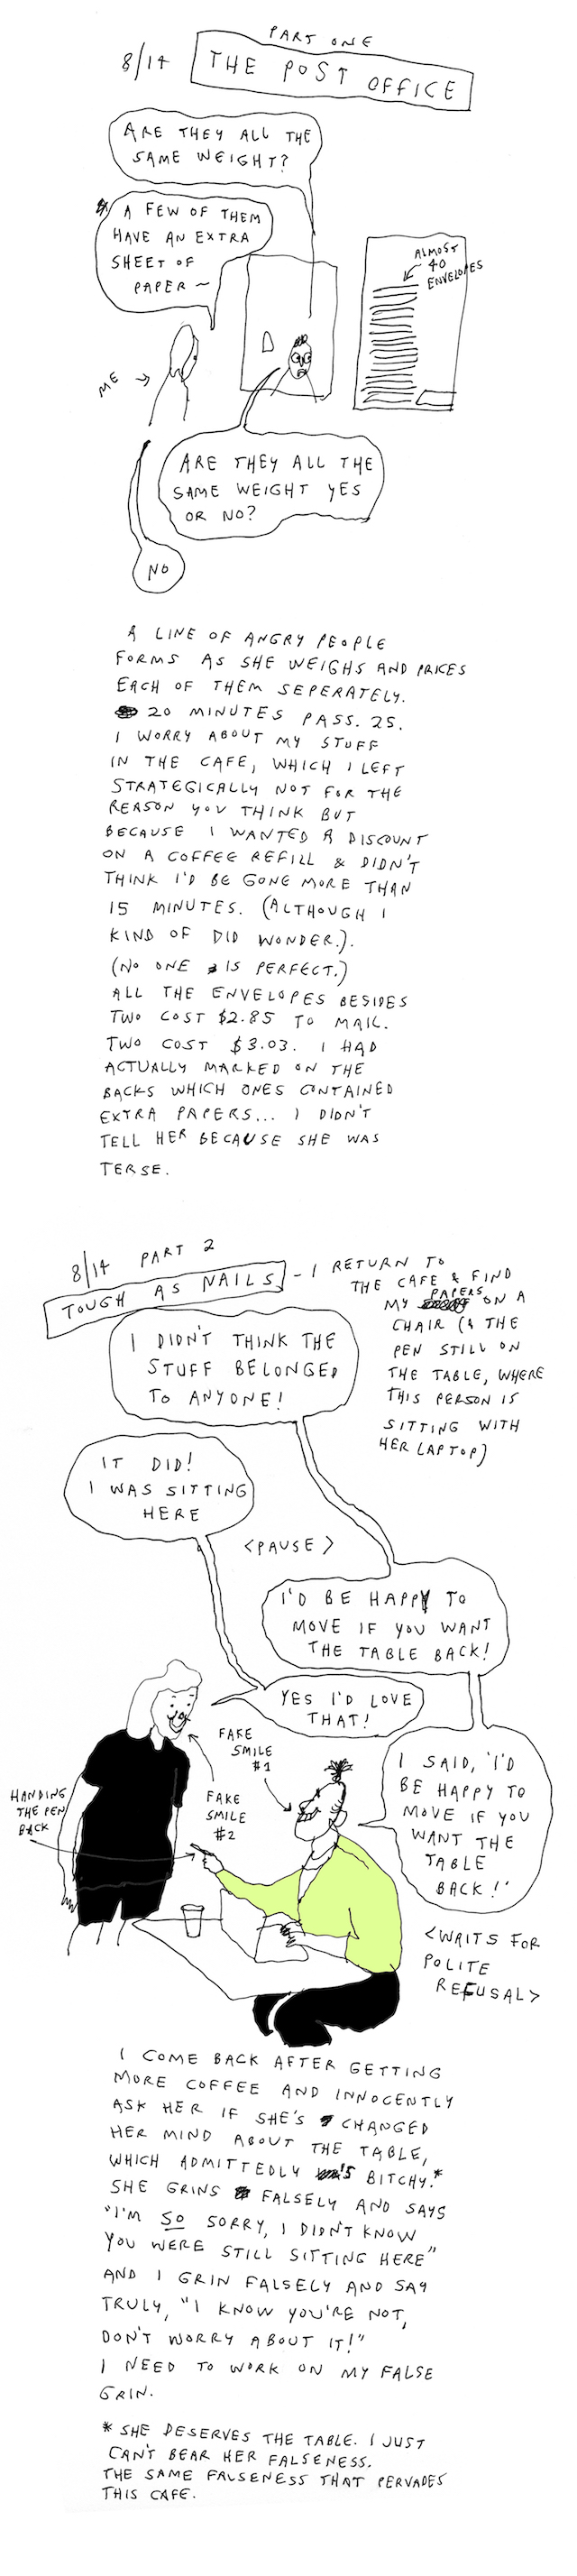 PART ONE
8/14 THE POST OFFICE
ARE THEY ALL THE
SAME WEIGHT?
A FEW OF THEM
HAVE AN EXTRA
SHEET OF
PAPER ~
ALMOST
40
ENVELOPES
ME →
ARE THEY ALL THE
SAME WEIGHT YES
OR NO?
NO
A LINE OF ANGRY PEOPLE
FORMS AS SHE WEIGHS AND PRICES
EACH OF THEM SEPERATELY.
20 MINUTES PASS. 25.
I WORRY ABOUT MY STUFF
IN THE CAFE, WHICH I LEFT
STRATEGICALLY NOT FOR THE
REASON YOU THINK BUT
BECAUSE I WANTED A DISCOUNT
ON A COFFEE REFILL & DIDN'T
THINK I'D BE GONE MORE THAN
15 MINUTES. (ALTHOUGH I
KIND OF DID WONDER.).
(NO ONE IS PERFECT.)
ALL THE ENVELOPES BESIDES
TWO COST $2.85 TO MAIL.
TWO COST $3.03. I HAD
ACTUALLY MARKED ON THE
BACKS WHICH ONES CONTAINED
EXTRA PAPERS... I DIDN'T
TELL HER BECAUSE SHE WAS
TERSE.
8/14 PART 2
TOUGH AS NAILS - I RETURN TO
THE CAFE & FIND
MY PAPERS ON A
CHAIR (& THE
PEN STILL ON
THE TABLE, WHERE
THIS PERSON IS
SITTING WITH
HER LAPTOP)
I DIDN'T THINK THE
STUFF BELONGED
TO ANYONE!
IT DID!
I WAS SITTING
HERE
<PAUSE>
I'D BE HAPPY TO
MOVE IF YOU WANT
THE TABLE BACK!
YES I'D LOVE
THAT!
FAKE
SMILE
#1
FAKE
SMILE
#2
HANDING
THE PEN
BACK
I SAID, 'I'D
BE HAPPY TO
MOVE IF YOU
WANT THE
TABLE
BACK!'
<WAITS FOR
POLITE
REFUSAL>
I COME BACK AFTER GETTING
MORE COFFEE AND INNOCENTLY
ASK HER IF SHE'S CHANGED
HER MIND ABOUT THE TABLE,
WHICH ADMITTEDLY IS BITCHY.*
SHE GRINS FALSELY AND SAYS
"I'M SO SORRY, I DIDN'T KNOW
YOU WERE STILL SITTING HERE"
AND I GRIN FALSELY AND SAY
TRULY, "I KNOW YOU'RE NOT,
DON'T WORRY ABOUT IT!"
I NEED TO WORK ON MY FALSE
GRIN.
* SHE DESERVES THE TABLE. I JUST
CAN'T BEAR HER FALSENESS.
THE SAME FALSENESS THAT PERVADES
THIS CAFE.